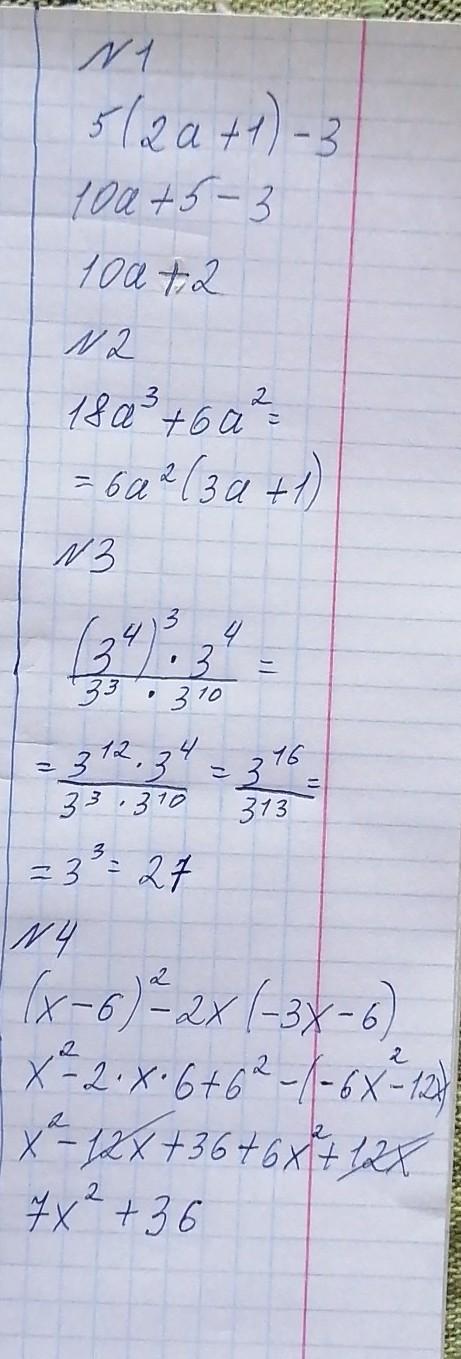 N1
5(2a+1)-3
10a+5-3
10a+2
N2
18a³+6a²=
=6a²(3a+1)
N3
(3⁴)³·3⁴ / 3³·3¹⁰ =
= 3¹²·3⁴ / 3³·3¹⁰ = 3¹⁶ / 3¹³ =
=3³=27
N4
(x-6)²-2x(-3x-6)
x²-2·x·6+6²-(-6x²-12x)
x²-12x+36+6x²+12x
7x²+36